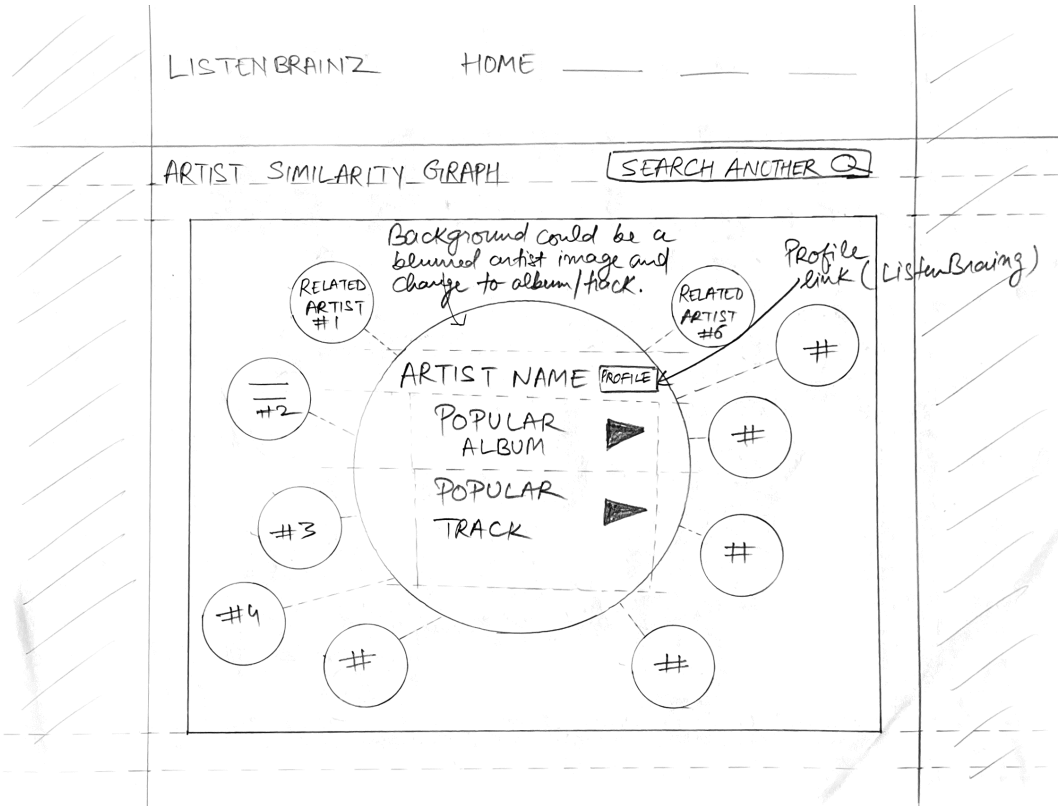 LISTENBRAINZ HOME
ARTIST SIMILARITY GRAPH
SEARCH ANOTHER
Background could be a
blurred artist image and
change to album/track.
Profile
link (ListenBrainz)
RELATED
ARTIST
#1
RELATED
ARTIST
#6
#
ARTIST NAME PROFILE
#2
POPULAR
ALBUM
#
POPULAR
TRACK
#3
#
#4
#
#